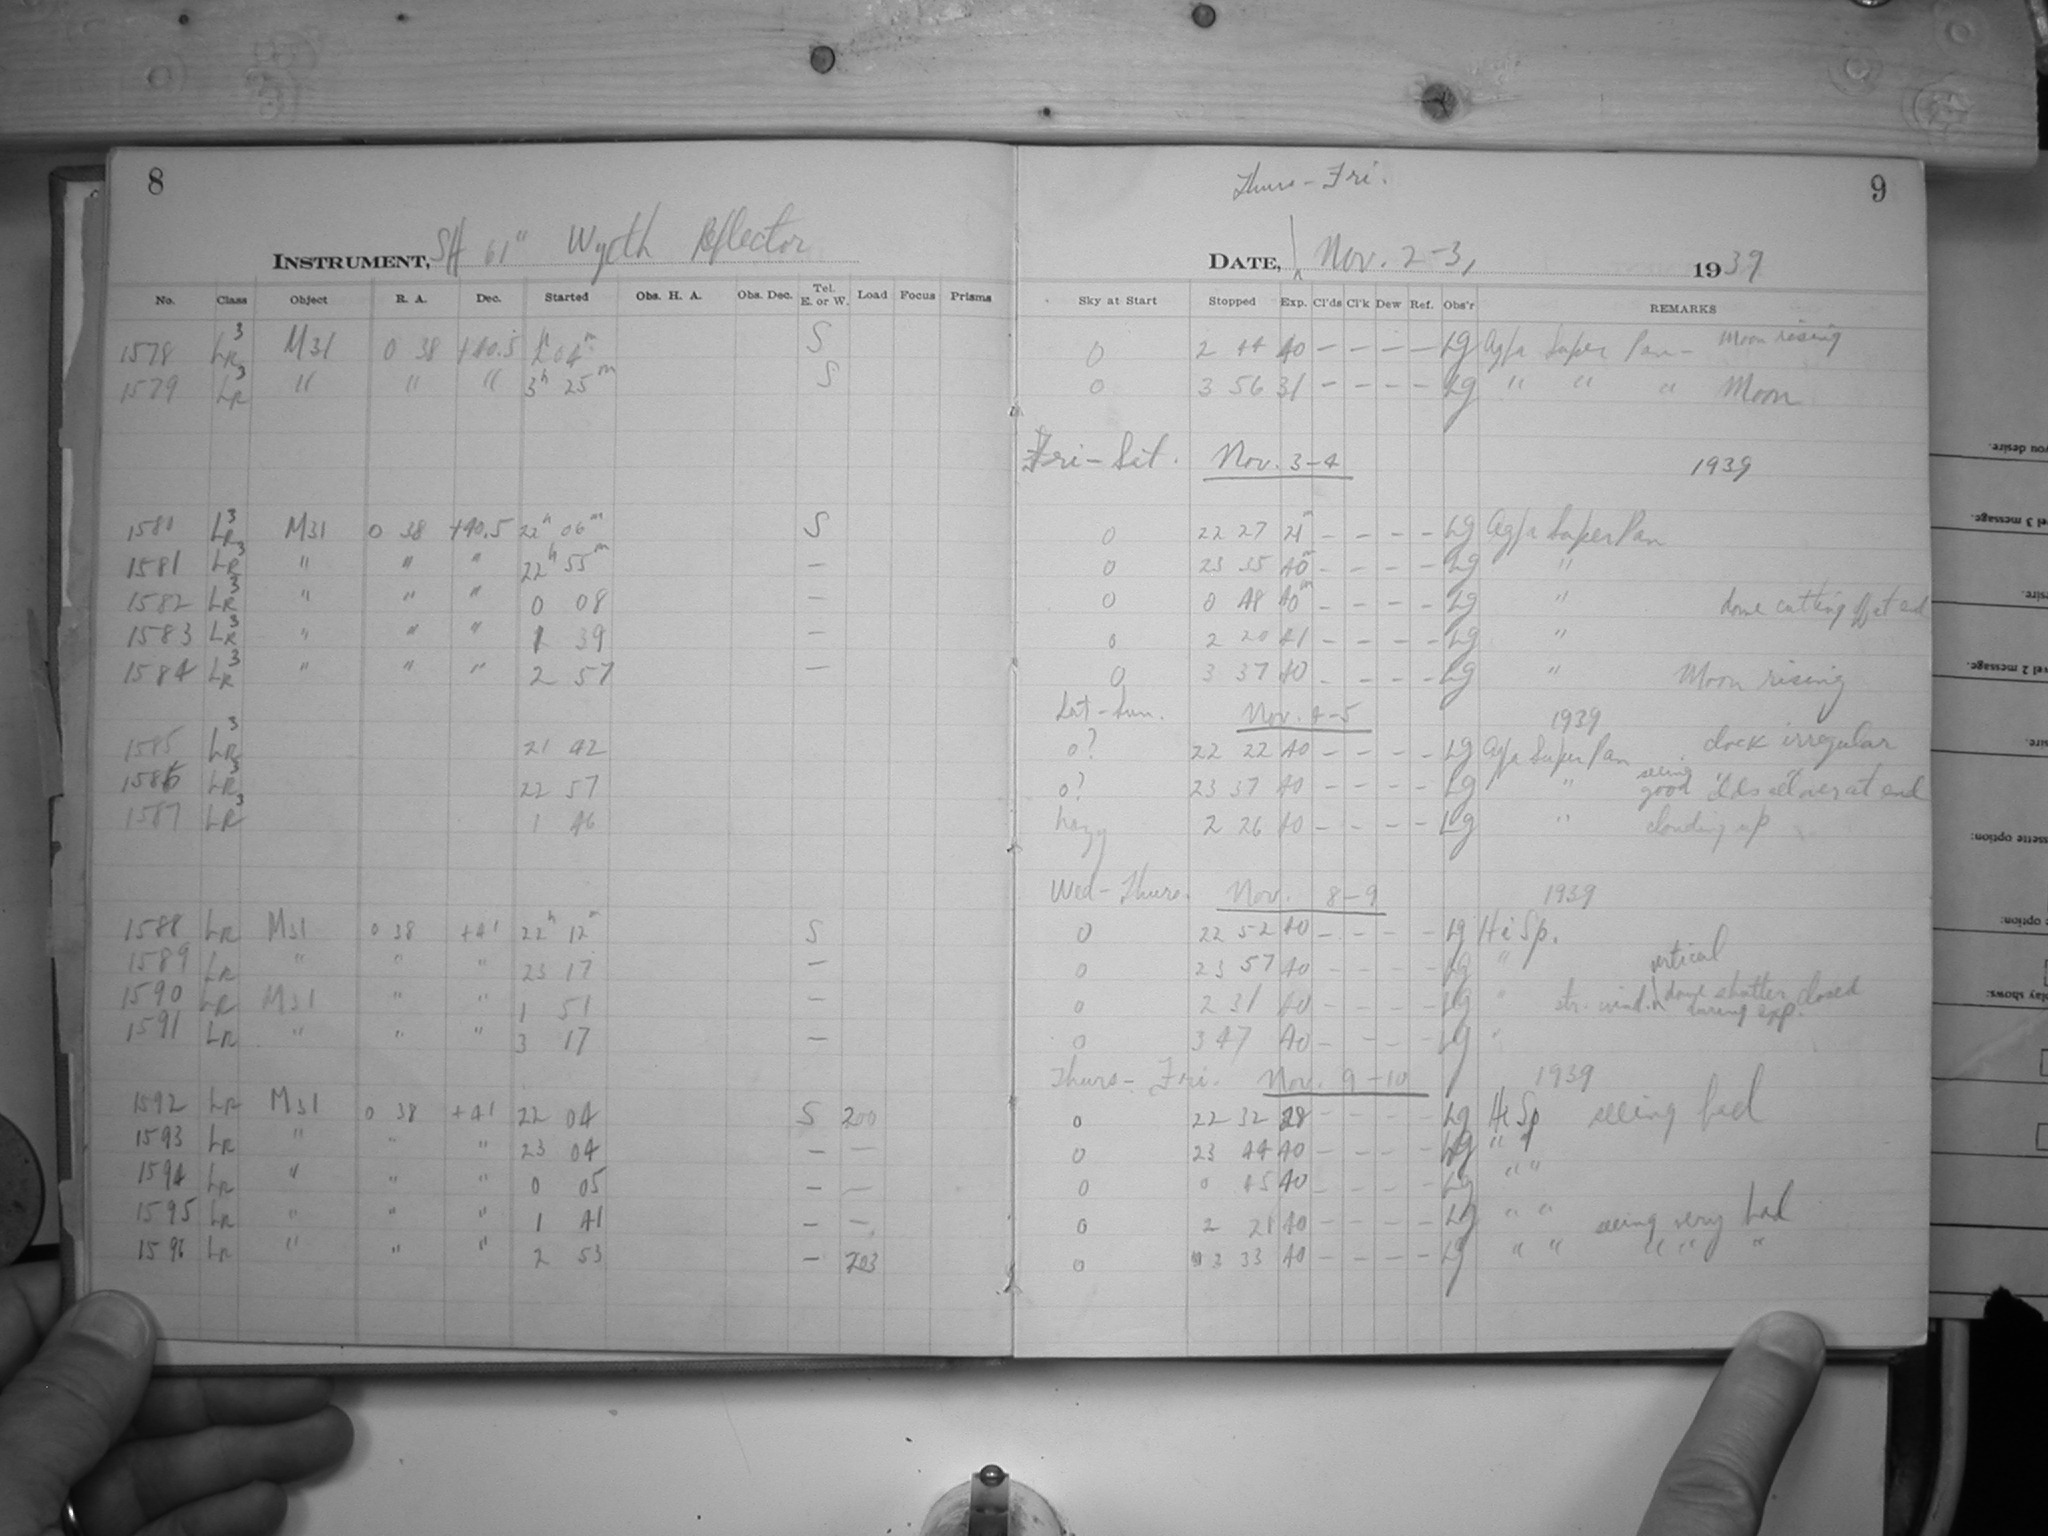 8
Thurs - Fri.
9
INSTRUMENT, SH 61" Wyeth Reflector
DATE, Nov. 2-3, 1939
No. Class Object R. A. Dec. Started Obs. H. A. Obs. Dec. Tel. E. or W. Load Focus Prisms Sky at Start Stopped Exp. Cl'ds Cl'k Dew Ref. Obs'r REMARKS
1578 LR3 M31 0 38 +40.5 2h 04m S 0 2 44 40 — — — — Lg Agfa Super Pan - Moon rising
1579 LR3 " " " 3h 25m S 0 3 56 31 — — — — Lg " " " Moon
Fri - Sat. Nov. 3-4 1939
1580 LR3 M31 0 38 +40.5 22h 06m S 0 22 27 21m — — — — Lg Agfa Super Pan
1581 LR3 " " " 22h 55m — 0 23 35 40m — — — — Lg "
1582 LR3 " " " 0 08 — 0 0 48 40m — — — — Lg " dome cutting off at end
1583 LR3 " " " 1 39 — 0 2 20 41 — — — — Lg "
1584 LR3 " " " 2 57 — 0 3 37 40 — — — — Lg " Moon rising
Sat - Sun. Nov. 4-5 1939
1585 LR3 21 42 0? 22 22 40 — — — — Lg Agfa Super Pan clock irregular
1586 LR3 22 57 0? 23 37 40 — — — — Lg " seeing good cl'ds all over at end
1587 LR3 1 46 hazy 2 26 40 — — — — Lg " clouding up
Wed - Thurs. Nov. 8-9 1939
1588 LR M31 0 38 +41 22h 12m S 0 22 52 40 — — — — Lg Hi Sp.
1589 LR " " " 23 17 — 0 23 57 40 — — — — Lg "
1590 LR M31 " " 1 51 — 0 2 31 40 — — — — Lg " str. wind. vertical dome shutter closed during exp.
1591 LR " " " 3 17 — 0 3 47 40 — — — — Lg "
Thurs - Fri. Nov. 9-10 1939
1592 LR M31 0 38 +41 22 04 S 200 0 22 32 28 — — — — Lg Hi Sp seeing bad
1593 LR " " " 23 04 — — 0 23 44 40 — — — — Lg " "
1594 LR " " " 0 05 — — 0 0 45 40 — — — — Lg " "
1595 LR " " " 1 41 — — 0 2 21 40 — — — — Lg " " seeing very bad
1596 LR " " " 2 53 — 203 0 3 33 40 — — — — Lg " " " " "
you desire.
vel 3 message.
sire.
vel 2 message.
sire.
ssette option:
e option:
play shows: